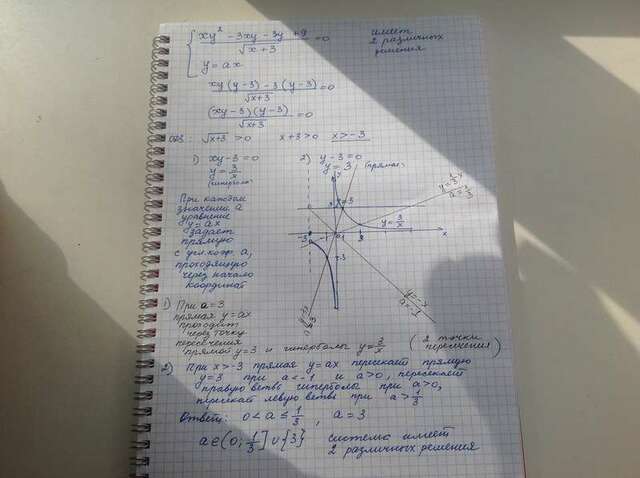 xy² - 3xy - 3y + 9
√x+3 = 0
y = ax
имеет
2 различных
решения
xy(y-3) - 3(y-3)
√x+3 = 0
(xy-3)(y-3)
√x+3 = 0
ОДЗ: √x+3 > 0 x+3 > 0 x > -3
1) xy - 3 = 0
y = 3/x
2) y - 3 = 0
y = 3 (прямая)
При каждом
значении a
уравнение
y = ax
задаёт
прямую
с угл. коэф. a,
проходящую
через начало
координат
y
y = 3/x
-3 -1 0 1 3
x
-3
a = 1/3
y = -x
a = -1
1) При a = 3
прямая y = ax
проходит
через точку
пересечения
прямая y = 3 и гиперболы y = 3/x
(2 точки
пересечения)
2) При x > -3 прямая y = ax пересекает прямую
y = 3 при a < -1 и a > 0, пересекает
правую ветвь гиперболы при a > 0,
пересекает левую ветвь при a > 1/3
Ответ: 0 < a ≤ 1/3, a = 3
a ∈ (0; 1/3] ∪ {3} система имеет
2 различных решения